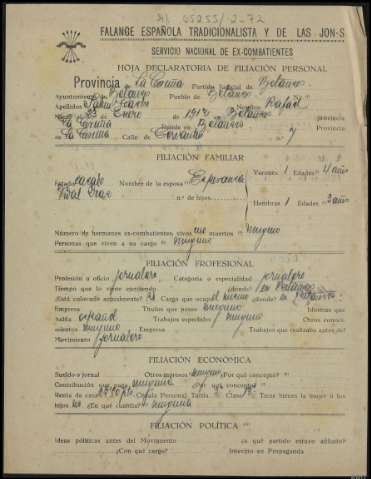 05255/2-72
FALANGE ESPAÑOLA TRADICIONALISTA Y DE LAS JON-S
SERVICIO NACIONAL DE EX-COMBATIENTES
HOJA DECLARATORIA DE FILIACIÓN PERSONAL
Provincia de La Coruña Partido Judicial de Betanzos
Ayuntamiento de Betanzos Pueblo de Betanzos
Apellidos Nombre Rafael
Enero de Betanzos provincia
La Coruña Betanzos Provincia
La Coruña Calle de Cervantes n.º 7
FILIACIÓN FAMILIAR
Estado casado Nombre de la esposa Esperanza Varones 1 Edades 4 años
Vidal Díaz n.º de hijos Hembras 1 Edades 2 años
Número de hermanos ex-combatientes vivos muertos ninguno
Personas que viven a su cargo ninguno
FILIACIÓN PROFESIONAL
Profesión u oficio jornalero Categoría o especialidad jornalero
Tiempo que lo viene ejerciendo ¿dónde? en Betanzos
¿Está colocado actualmente? Cargo que ocupa el mismo ¿dónde? en Betanzos
Empresa Títulos que posee ninguno Idiomas que
habla español Trabajos especiales ninguno Otros conoci-
mientos ninguno Empresa Trabajos que realizaba antes del
Movimiento jornalero
FILIACIÓN ECONÓMICA
Sueldo o jornal Otros ingresos ninguno ¿Por qué conceptos?
Contribución que paga ninguna ¿Por qué conceptos?
Renta de casa Cédula Personal Tarifa Clase Tiene bienes la mujer o los
hijos no ¿En qué cuantía? ninguna
FILIACIÓN POLÍTICA
Ideas políticas antes del Movimiento ¿a qué partido estuvo afiliado?
¿Con qué cargo? Intervino en Propaganda